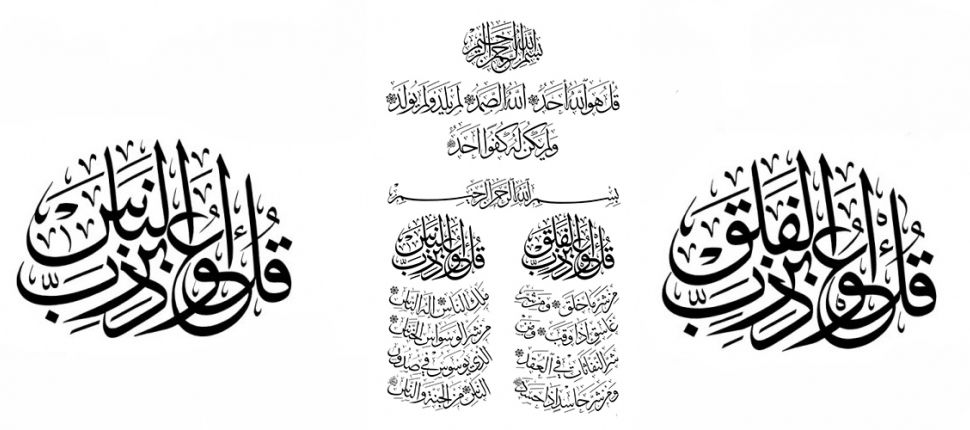 قُلْ أَعُوذُ بِرَبِّ الْفَلَقِ
بسم الله الرحمن الرحيم
قُلْ هُوَ اللَّهُ أَحَدٌ * اللَّهُ الصَّمَدُ * لَمْ يَلِدْ وَلَمْ يُولَدْ *
وَلَمْ يَكُنْ لَهُ كُفُوًا أَحَدٌ
بسم الله الرحمن الرحيم
قُلْ أَعُوذُ بِرَبِّ الْفَلَقِ
من شر ما خلق * ومن شر
غاسق إذا وقب * ومن
شر النفاثات في العقد *
ومن شر حاسد إذا حسد
قُلْ أَعُوذُ بِرَبِّ النَّاسِ
ملك الناس * إله الناس
من شر الوسواس الخناس
الذي يوسوس في صدور
الناس * من الجنة والناس
قُلْ أَعُوذُ بِرَبِّ النَّاسِ